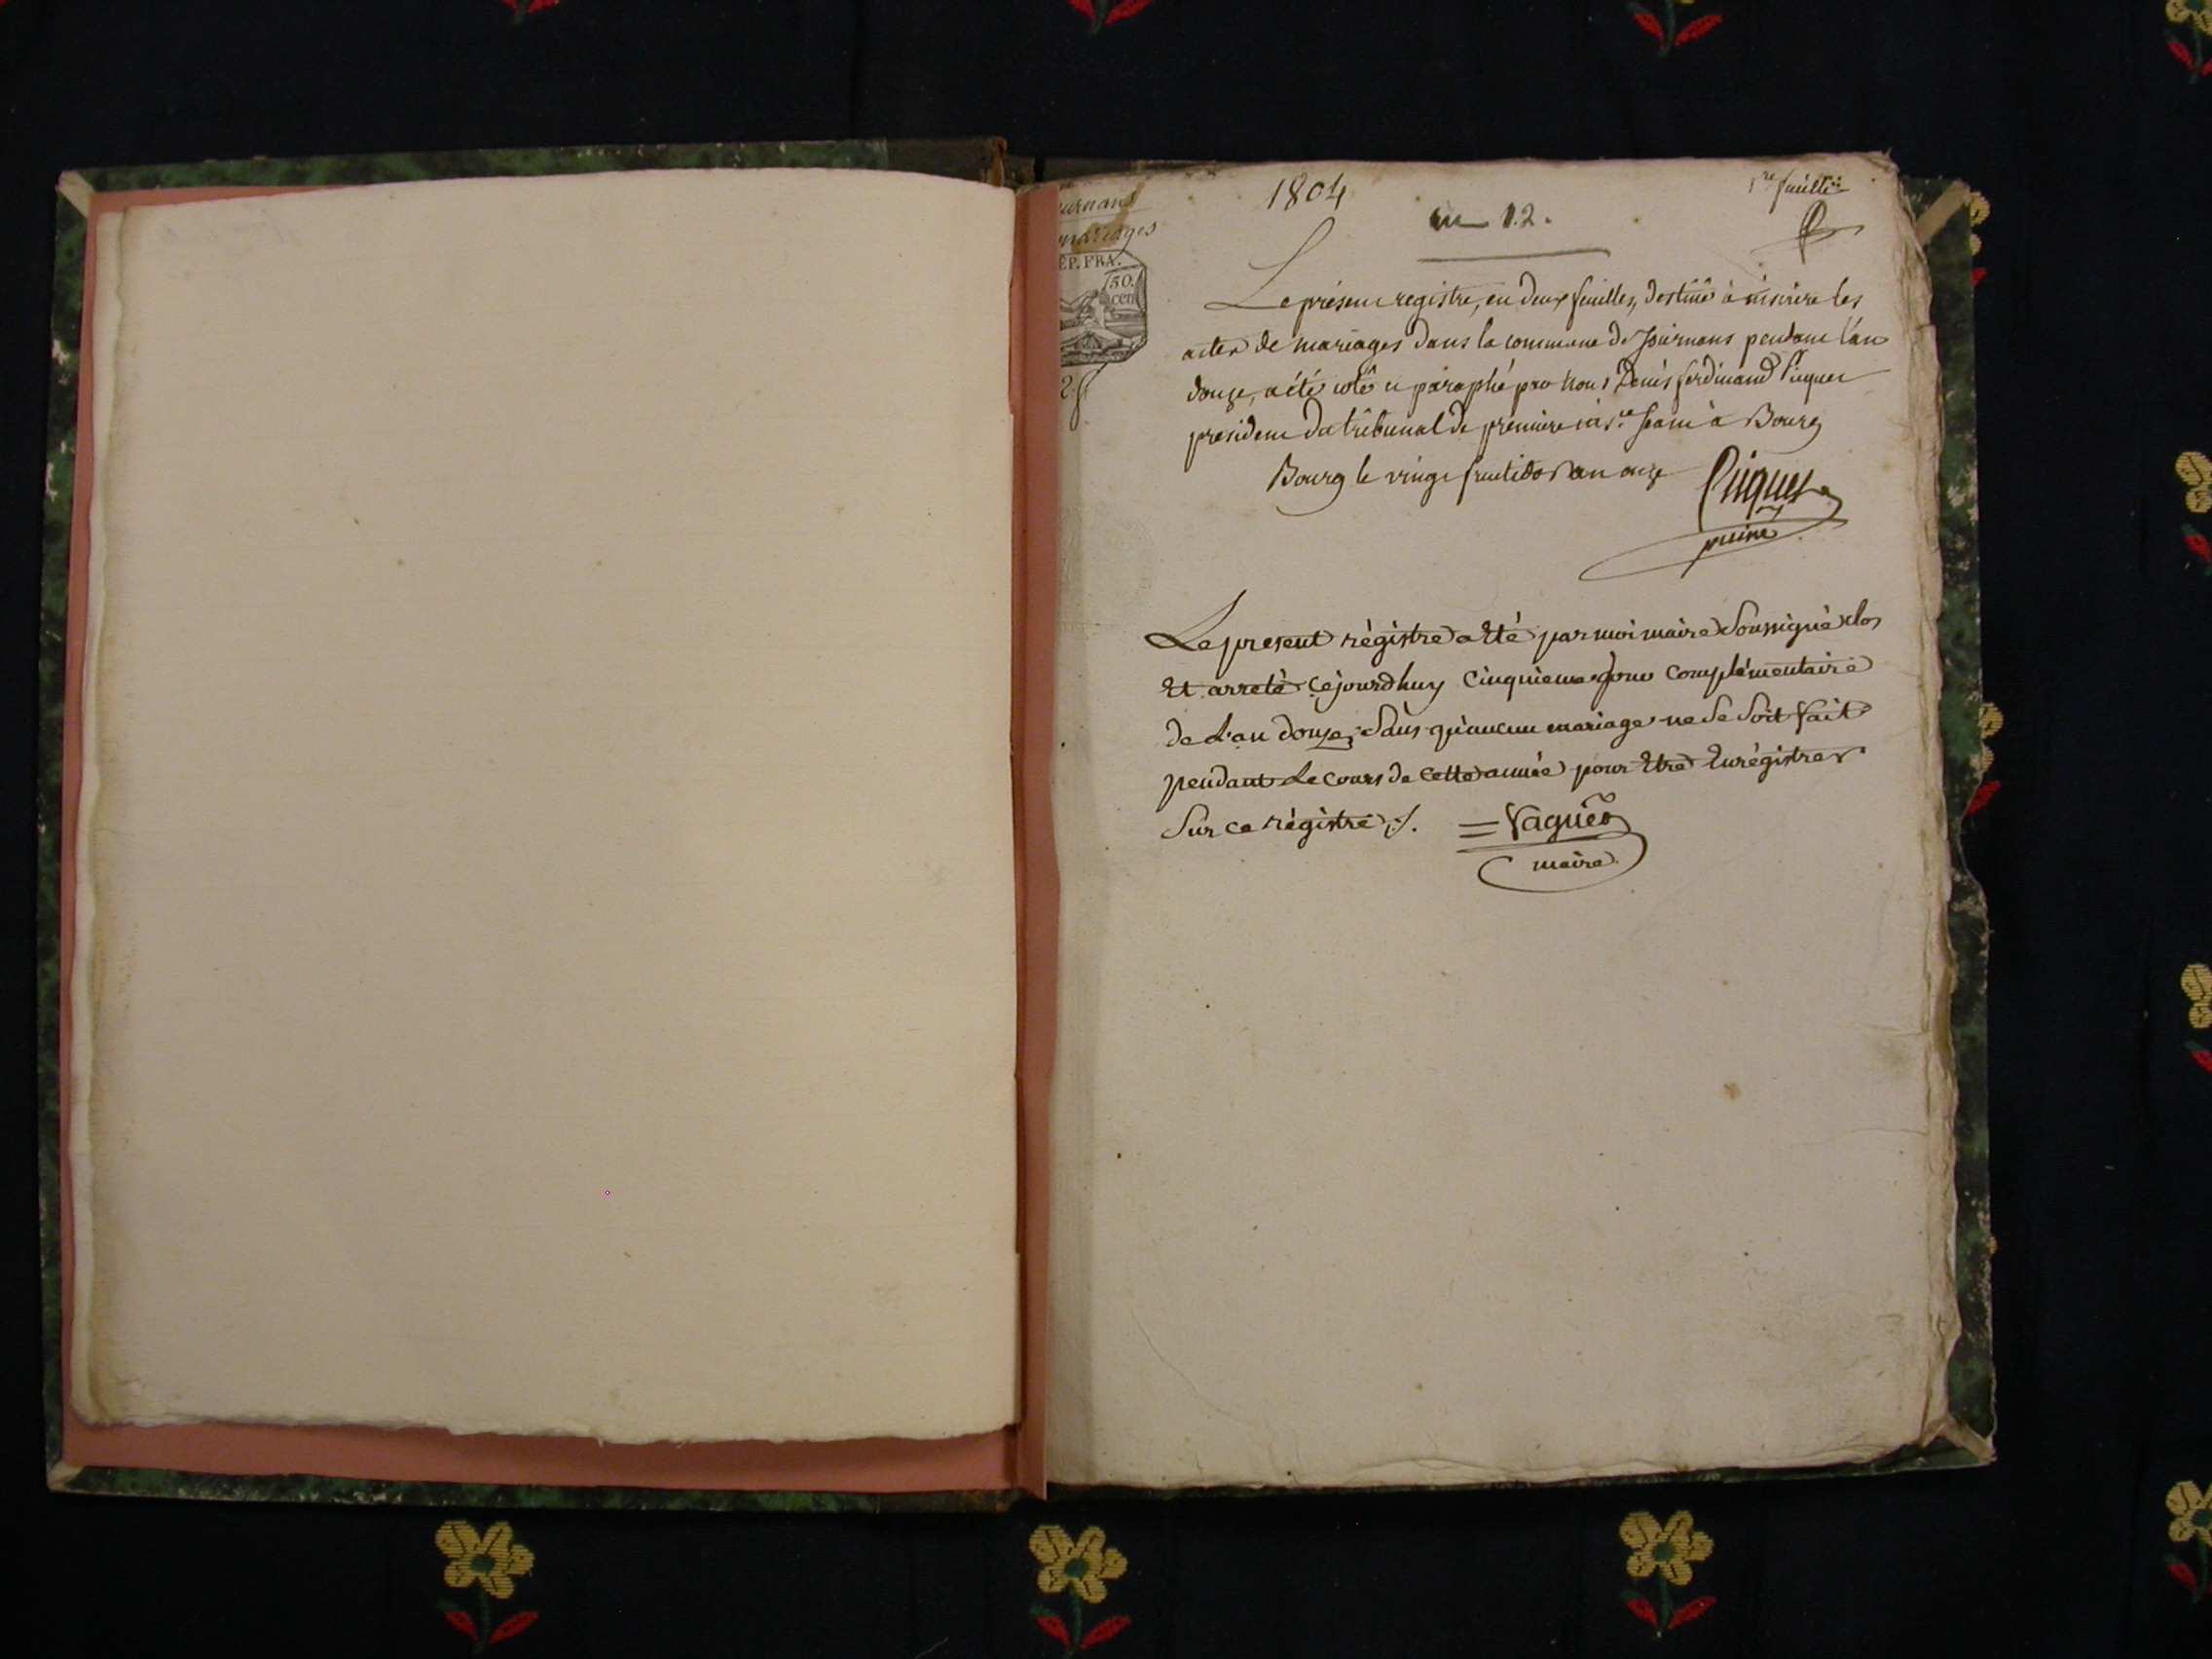 1804
1re feuille
an 12.
Journans
mariages
RÉP. FRA.
50.
cen
Le présent registre, en deux feuilles, destiné à inscrire les
actes de mariages dans la commune de Journans pendant l'an
douze, a été coté et paraphé par nous Denis ferdinand Piquet
president du tribunal de première ins.ce séant à Bourg
Bourg le vingt fructidor an onze
Piquet
puiné
Le present régistre a Eté par moi maire Soussigné clos
Et arreté cejourdhuy Cinquieme jour complémentaire
de L'an douze, Sans qu'aucun mariage ne Se Soit fait
pendant Le cours de cette année pour Etre Enrégistrer
Sur ce régistre ./.
= Vagner
maire